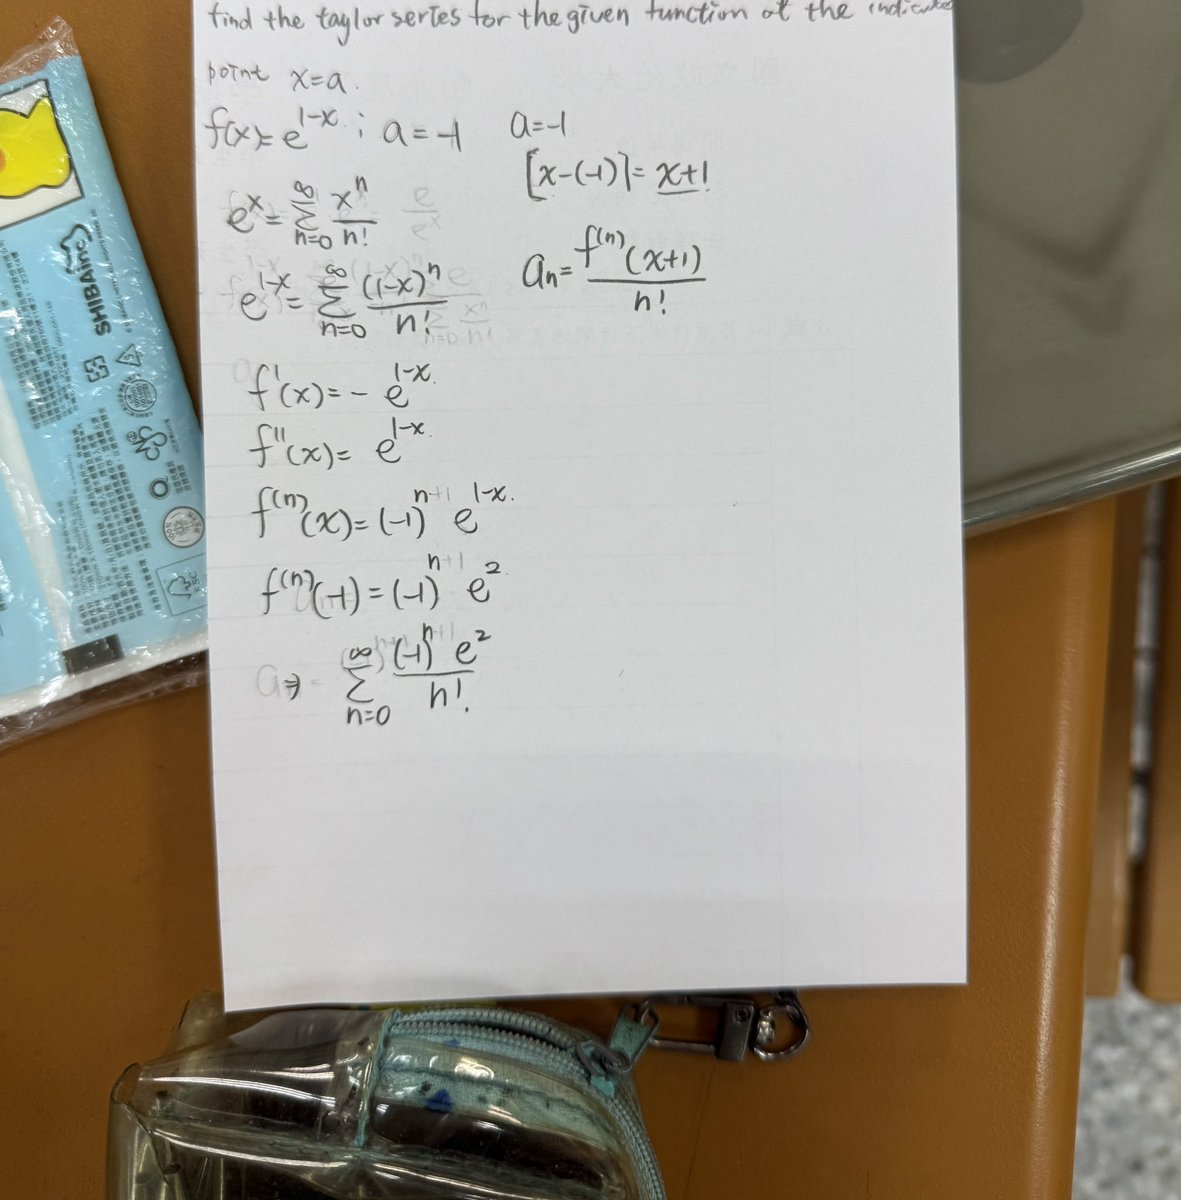 find the taylor series for the given function at the indicated
point x=a.
f(x)= e^{1-x} ; a = -1
e^x = \sum_{n=0}^{∞} \frac{x^n}{n!}
e^{1-x} = \sum_{n=0}^{∞} \frac{(1-x)^n}{n!}
f'(x) = - e^{1-x}.
f''(x) = e^{1-x}.
f^{(n)}(x) = (-1)^{n+1} e^{1-x}.
f^{(n)}(-1) = (-1)^{n+1} e^2
⇒ \sum_{n=0}^{∞} \frac{(-1)^{n+1} e^2}{n!}
a=-1
[x-(-1)] = x+1
a_n = \frac{f^{(n)}(x+1)}{n!}
SHIBAinc